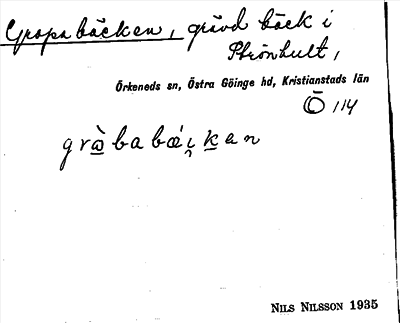 Gropabäcken, grävd bäck i
Strönhult,
Örkeneds sn, Östra Göinge hd, Kristianstads län
Ö 114
NILS NILSSON 1935